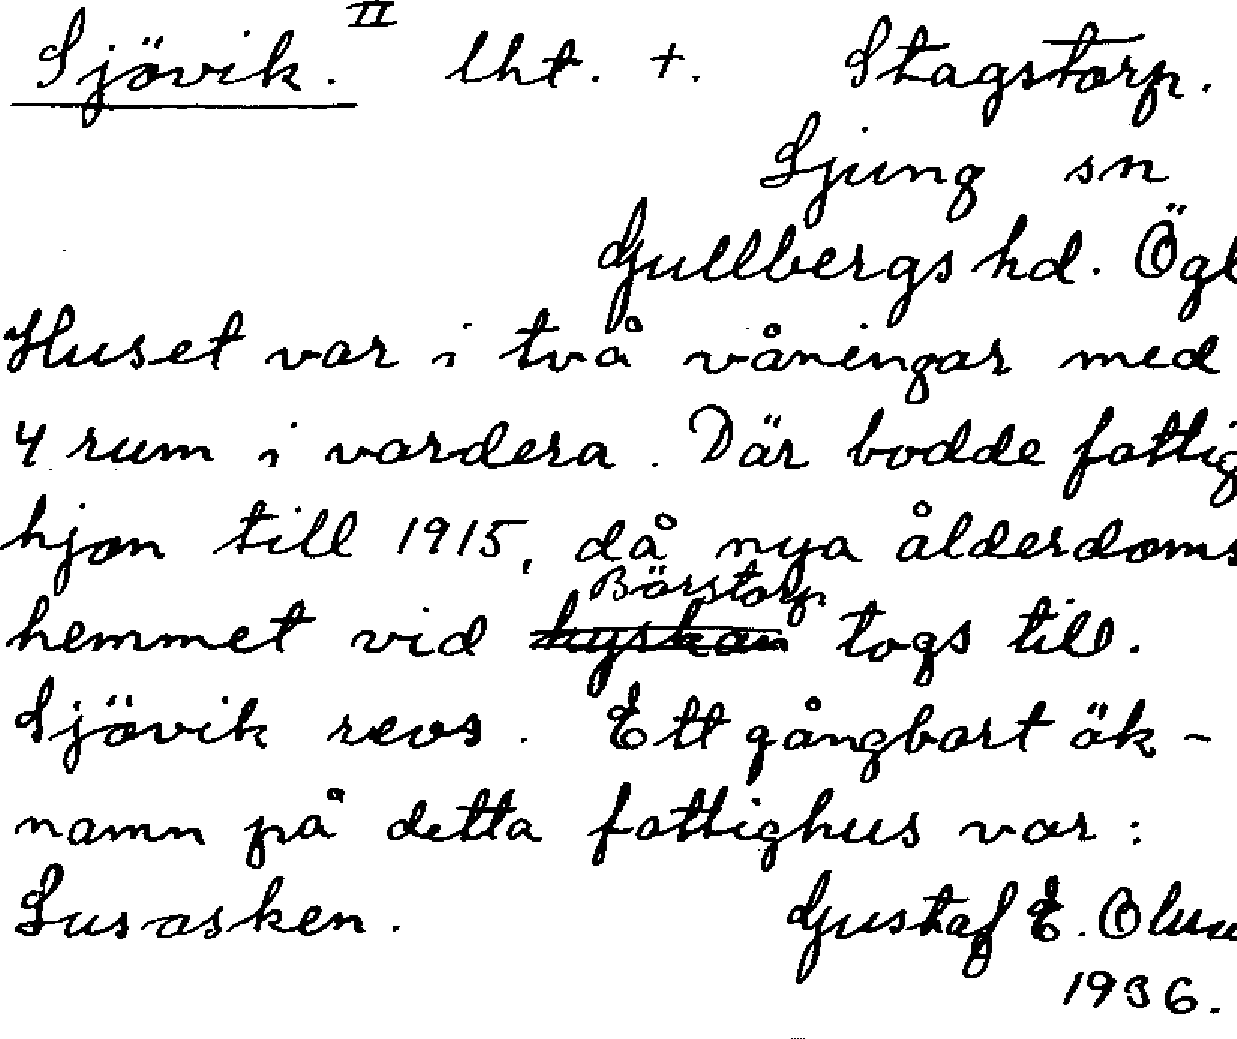 Sjövik. II lht. +. Stagstorp.
Ljung sn
Gullbergs hd. Ögl
Huset var i två våningar med
4 rum i vardera. Där bodde fattig
hjon till 1915, då nya ålderdoms
Börstorp
hemmet vid kyrkan togs till.
Sjövik revs. Ett gångbart ök-
namn på detta fattighus var:
Lusasken. Gustaf E. Olau
1936.